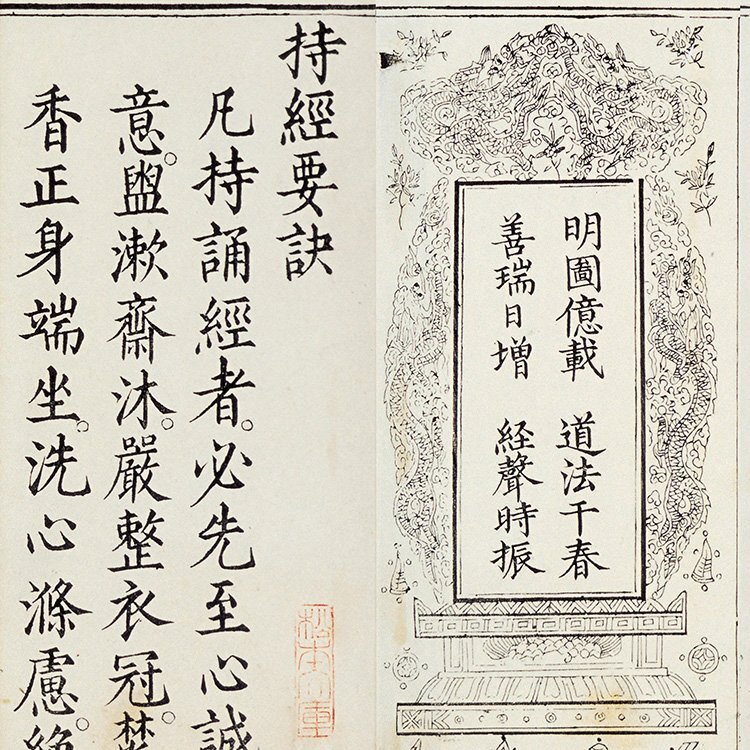 明圖億載 道法千春
善瑞日增 経聲時振
持經要訣
凡持誦經者。必先至心誠
意。盥漱齋沐。嚴整衣冠。焚
香正身端坐。洗心滌慮。